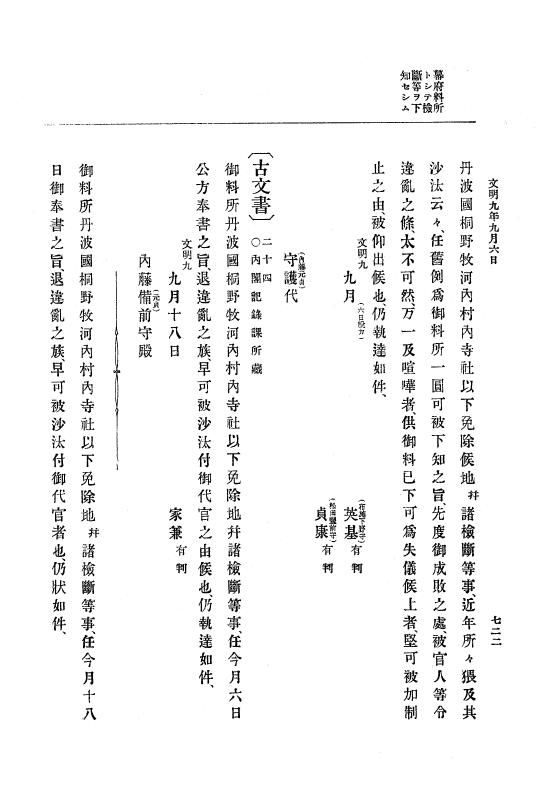 文明九年九月六日
七二二
幕府料所
トシテ檢
斷等ヲ下
知セシム
丹波國桐野牧河內村內寺社以下免除候地幷諸檢斷等事、近年所々猥及其
沙汰云々、任舊例爲御料所一圓可被下知之旨、先度御成敗之處、被官人等令
違亂之條、太不可然、万一及喧嘩者、供御料已下可爲失儀候上者、堅可被加制
止之由、被仰出候也、仍執達如件、
文明九
九月(六日脫カ)
英基有判
(松田豐前守)
貞康有判
(內藤元貞)
守護代
〔古文書〕二十四
○內閣記錄課所藏
御料所丹波國桐野牧河內村內寺社以下免除地幷諸檢斷等事、任今月六日
公方奉書之旨、退違亂之族、早可被沙汰付御代官之由候也、仍執達如件、
文明九
九月十八日
家兼有判
(元貞)
內藤備前守殿
御料所丹波國桐野牧河內村內寺社以下免除地幷諸檢斷等事、任今月十八
日御奉書之旨、退違亂之族、早可被沙汰付御代官者也、仍狀如件、